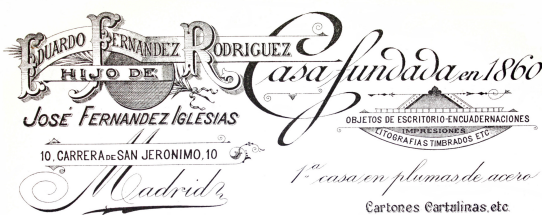 EDUARDO FERNANDEZ RODRIGUEZ
HIJO DE
JOSÉ FERNANDEZ IGLESIAS
10, CARRERA DE SAN JERONIMO, 10
Madrid
Casa fundada en 1860
OBJETOS DE ESCRITORIO-ENCUADERNACIONES
IMPRESIONES
LITOGRAFIAS TIMBRADOS ETC.
1.ª casa en plumas de acero
Cartones Cartulinas, etc.